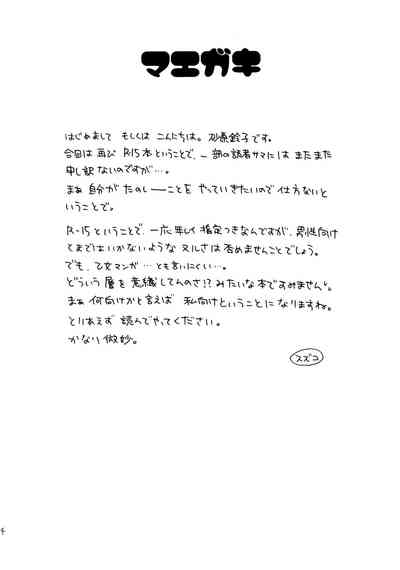 マエガキ
はじめまして もしくは こんにちは。加原鈴子です。
今回は 再び R-15本ということで、一部の読者サマには またまた
申し訳ないのですが…。
まぁ 自分が たのしーーことを やっていきたいので 仕方ないと
いうことで。
R-15ということで、一応 年れい 指定つきなんですが、男性向け
てまではいかないような ヌルさは 否めませんことでしょう。
でも、乙女マンガ…とも言いにくい…。
どういう 層を 意識してんのさ!? みたいな本ですみません。
まぁ 何向けかと言えば 私向けということになりますね。
とりあえず 読んでやってください。
かなり微妙。
スズコ